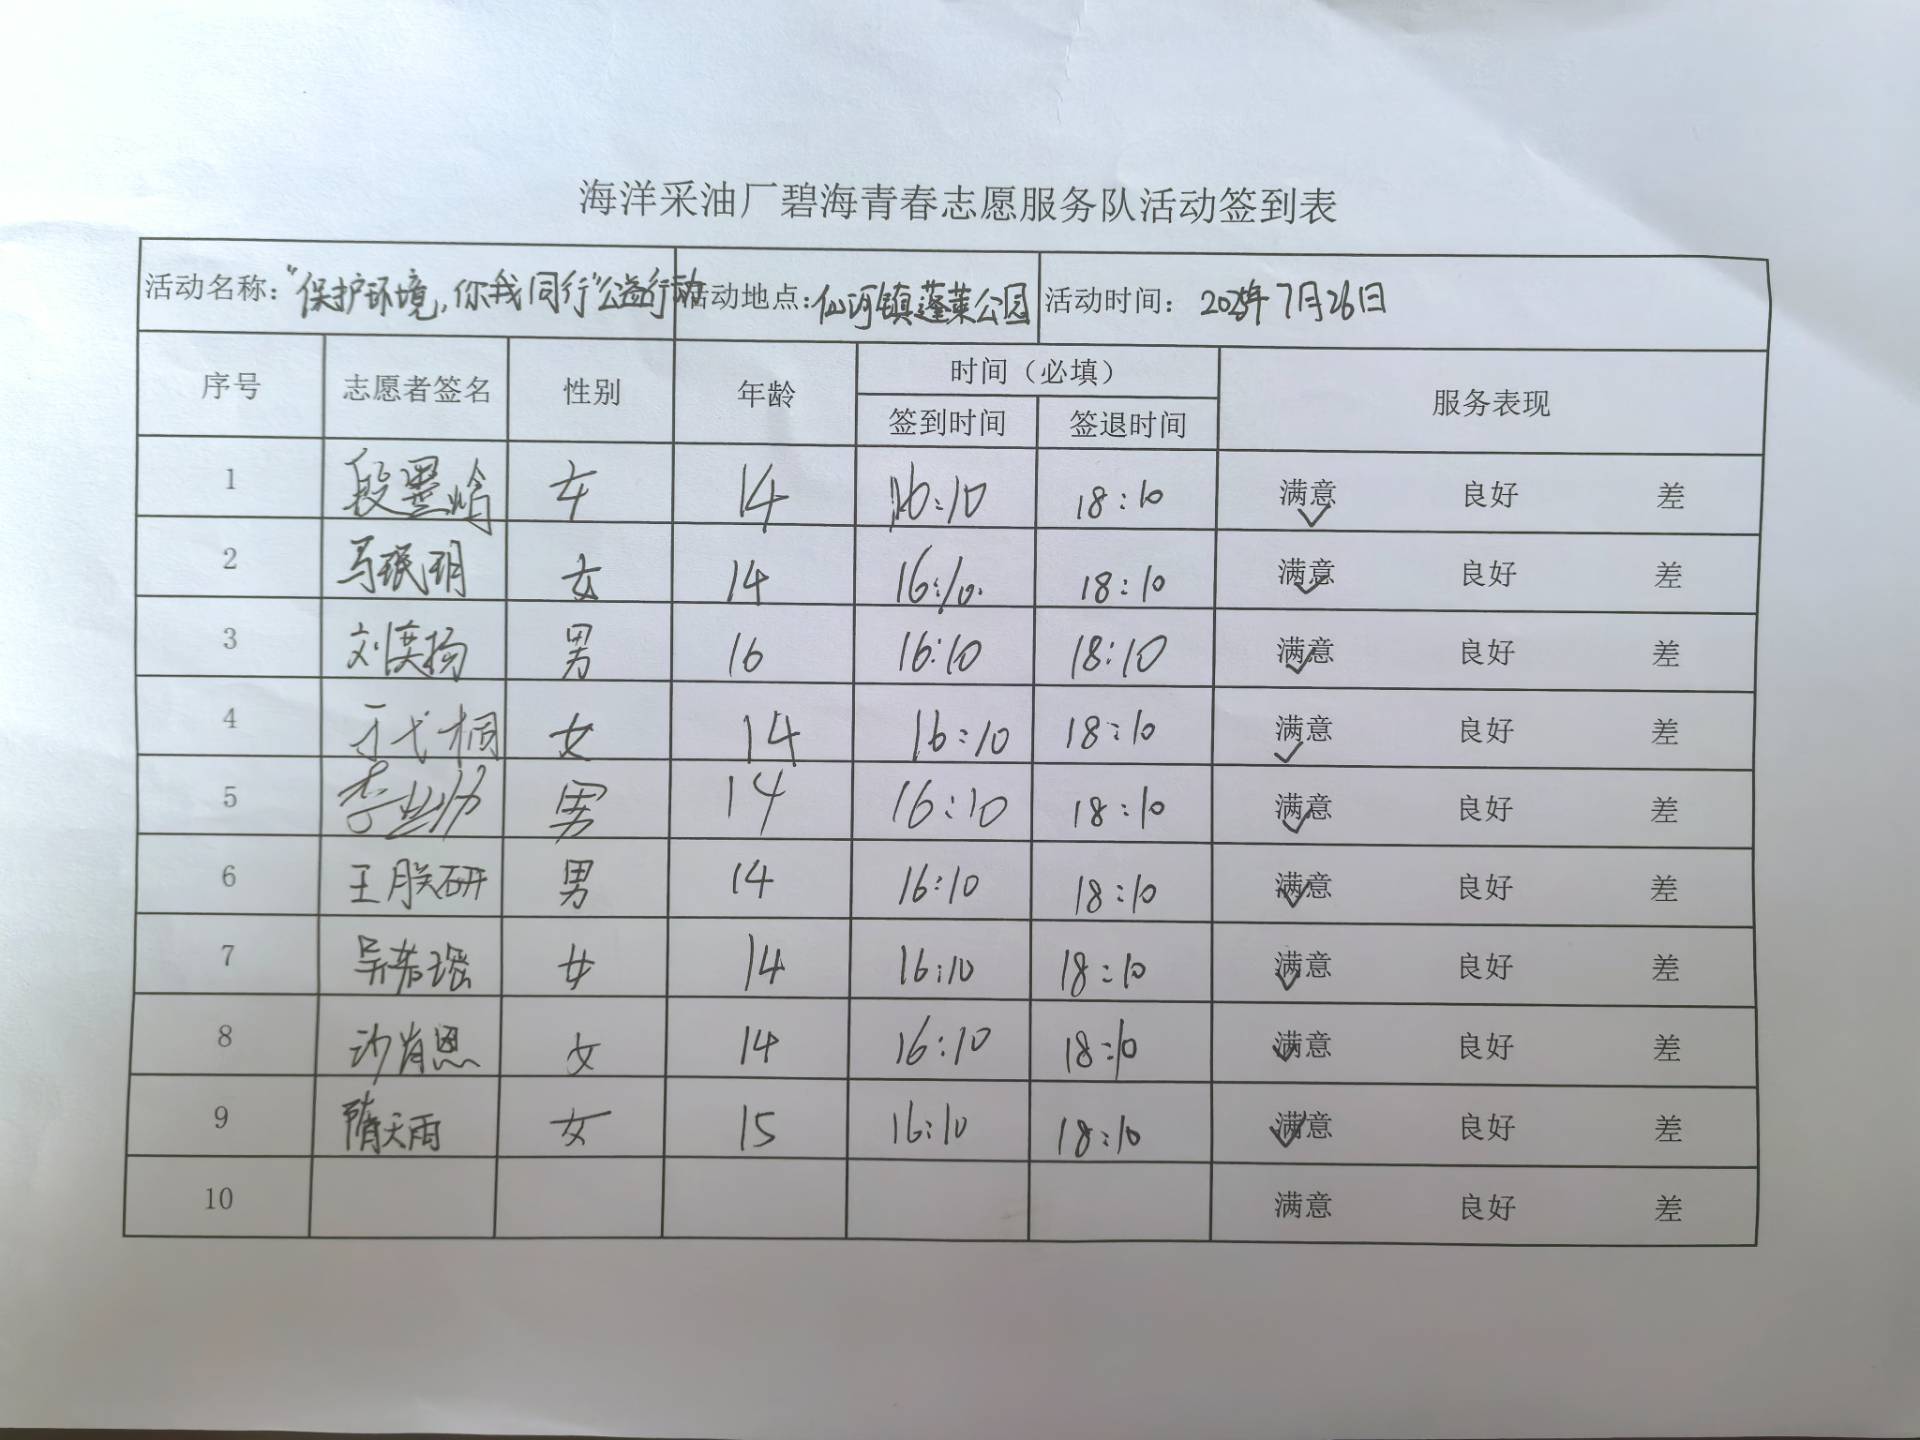 海洋采油厂碧海青春志愿服务队活动签到表
活动名称：“保护环境，你我同行”公益行动 活动地点：仙河镇蓬莱公园 活动时间：2025年7月26日
序号 志愿者签名 性别 年龄 时间（必填） 服务表现
签到时间 签退时间
1 段墨 女 14 16:10 18:10 满意 良好 差
2 马珉玥 女 14 16:10 18:10 满意 良好 差
3 刘奕扬 男 16 16:10 18:10 满意 良好 差
4 于弋桐 女 14 16:10 18:10 满意 良好 差
5 李 男 14 16:10 18:10 满意 良好 差
6 王朕研 男 14 16:10 18:10 满意 良好 差
7 吴若瑶 女 14 16:10 18:10 满意 良好 差
8 沙肖恩 女 14 16:10 18:10 满意 良好 差
9 隋天雨 女 15 16:10 18:10 满意 良好 差
10 满意 良好 差